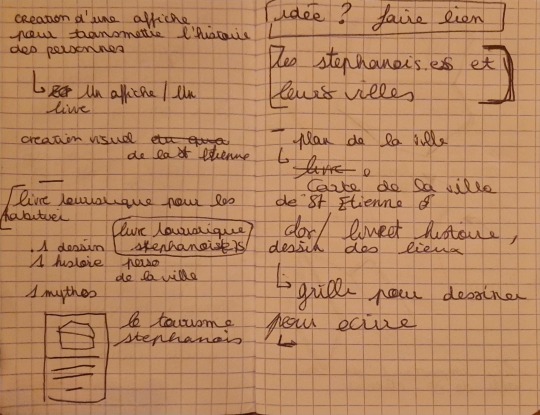 creation d'une affiche
pour transmettre l'histoire
des personnes
un affiche / un
livre
creation visual
de la st Etienne
livre touristique pour les
habituer
livre touristique
stephanois
.1 dessin
1 histoire perso
de la ville
1 mythos
le tourisme
stephanois
idée ? faire lien
les stephanois.es et
leurs villes
- plan de la ville
livre
Carte de la ville
de St Etienne
dos/ livret histoire,
dessin des lieux
grille pour dessiner
pour ecrire